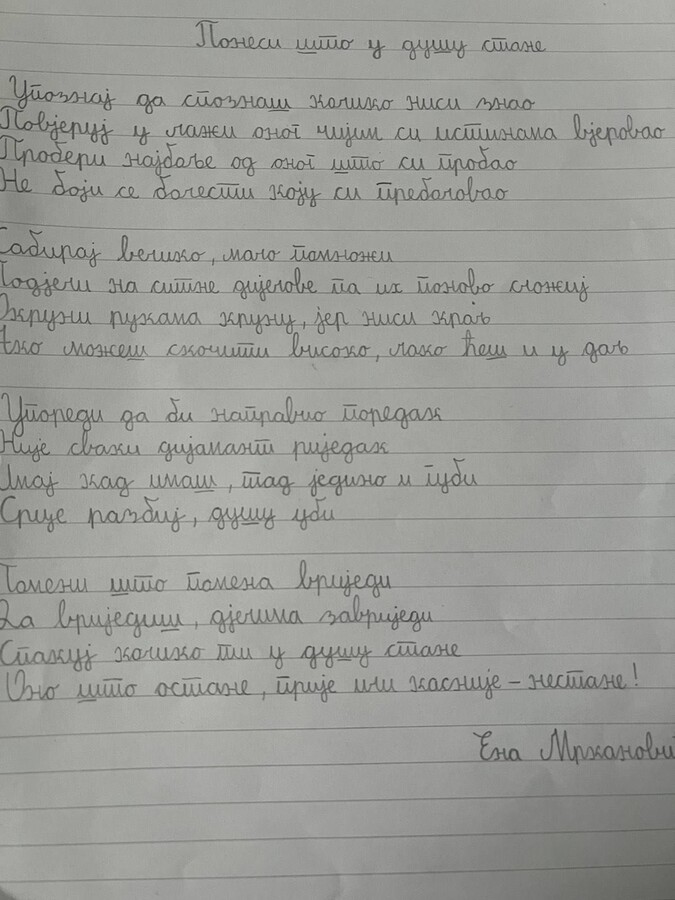 Понеси што у душу стане
Упознај да спознаш колико ниси знао
Повјеруј у лажи оног чијим си истинама вјеровао
Пробери најбоље од оног што си пробао
Не боји се болести коју си преболовао
Сабирај велико, мало помножи
Подјели на ситне дијелове па их поново сложиј
Окружи рукама круну, јер ниси краљ
Ако можеш скочити високо, лако ћеш и у даљ
Упореди да би направио поредак
Није сваки дијамант риједак
Имај кад имаш, тад једино и губи
Срце разбиј, душу уби
Помени што помена вриједи
Да вриједиш, дјелима завриједи
Спакуј колико ти у душу стане
Оно што остане, прије или касније - нестане!
Ена Мркановић